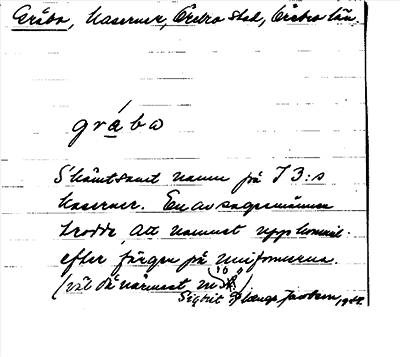 Gråbo, kaserner, Örebro stad, Örebro län
gråbo
Skämtsamt namn på I 3:s
kaserner. En av sagesmännen
trodde, att namnet uppkommit
efter färgen på uniformerna.
(väl då närmast m
Sigbrit Jacobson, 19